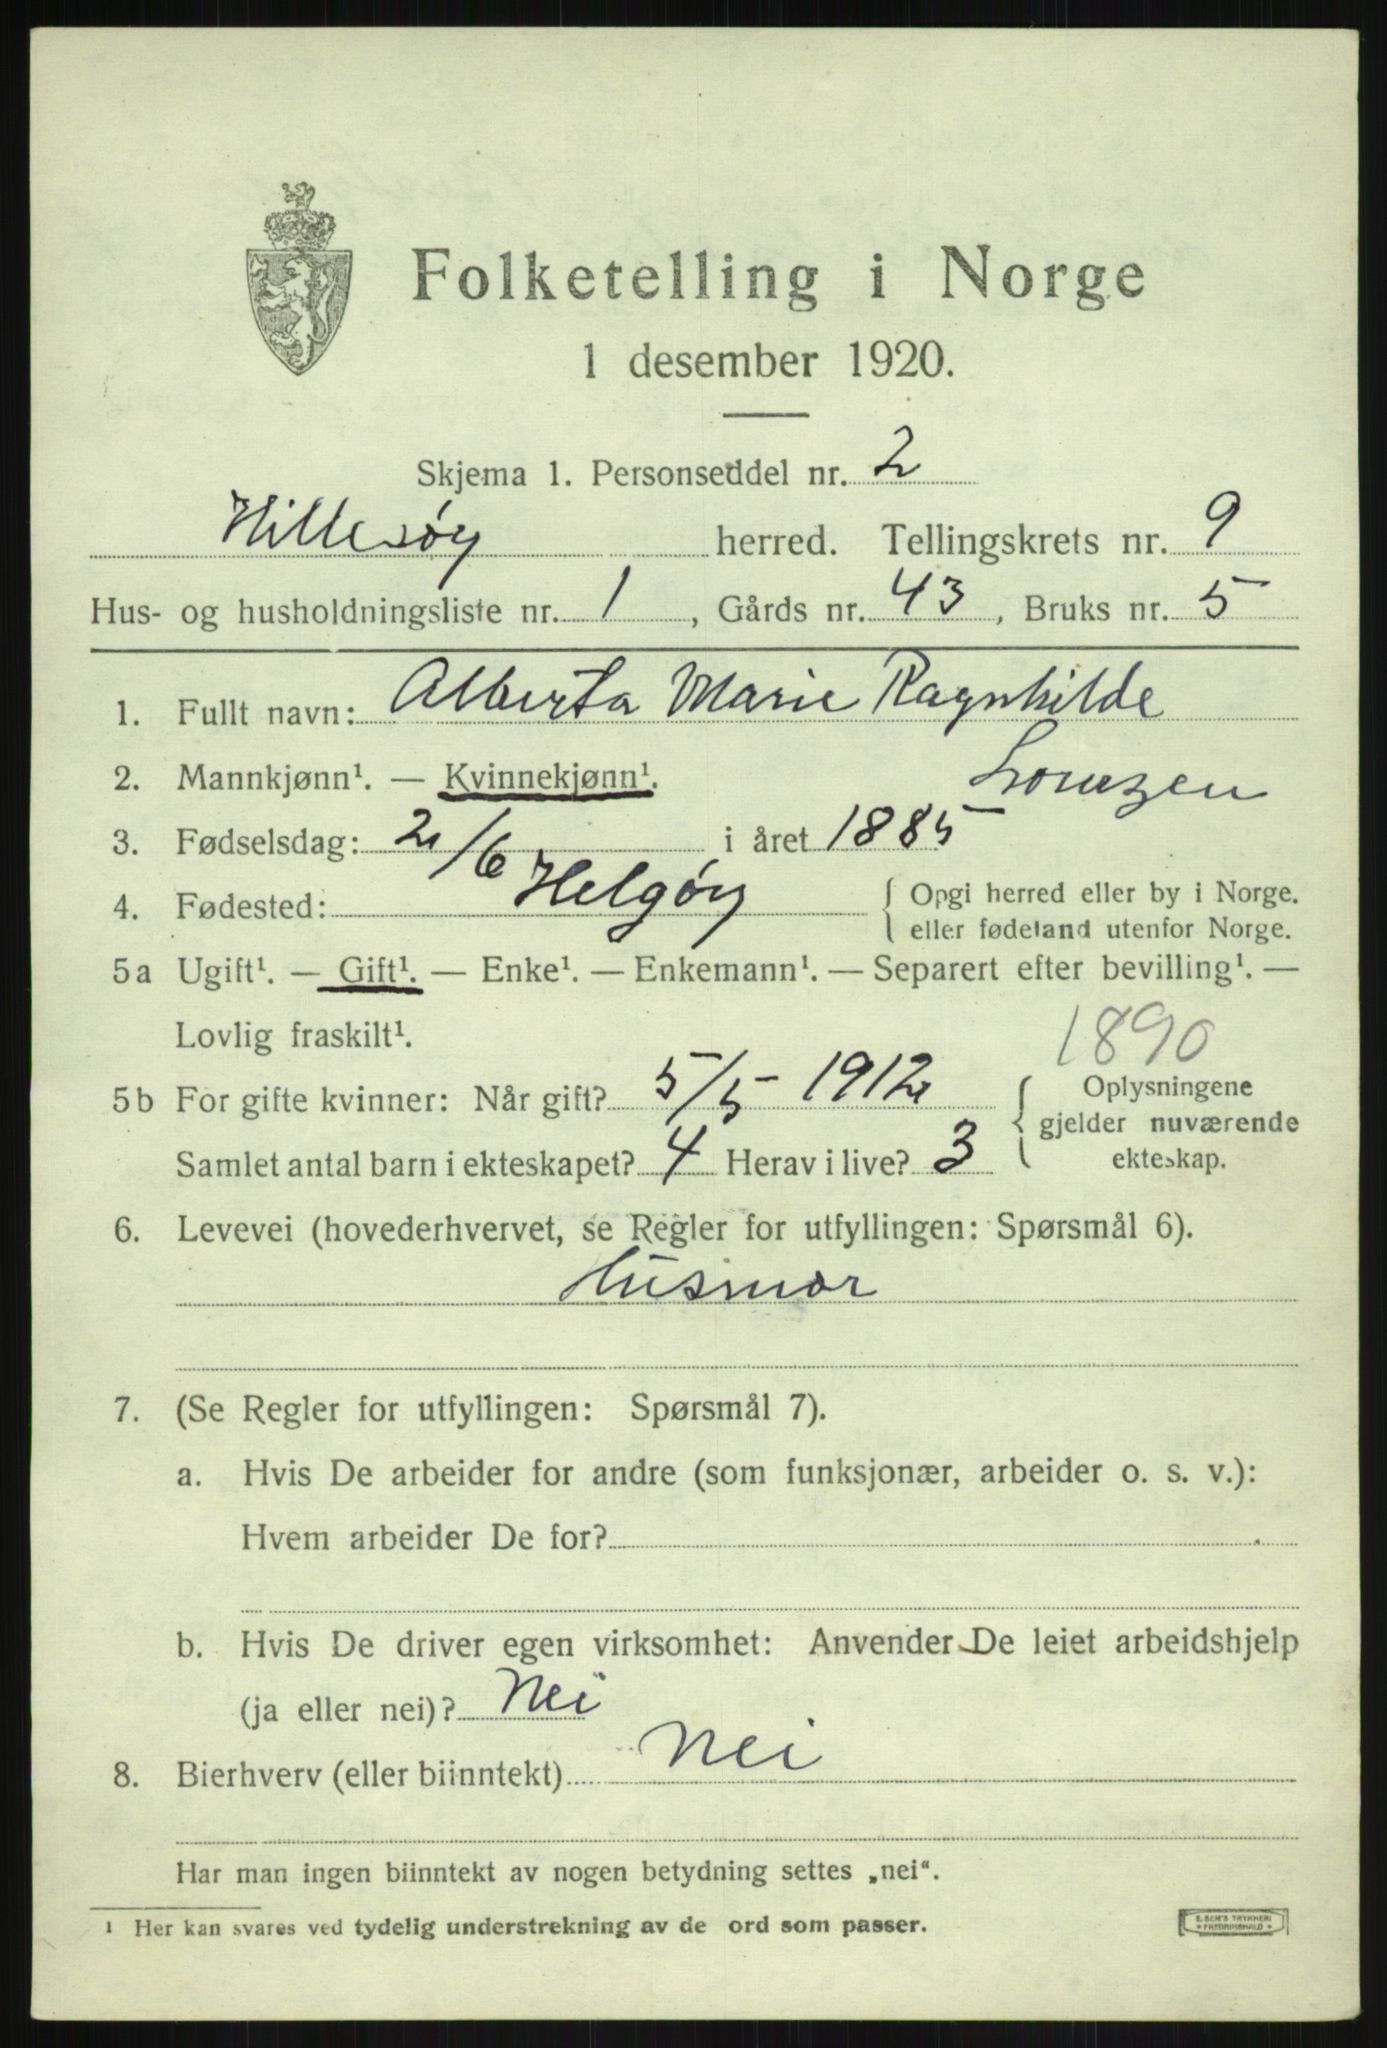 Folketelling i Norge
1 desember 1920.
Skjema 1. Personseddel nr. 2
Hillesøy herred. Tellingskrets nr. 9
Hus- og husholdningsliste nr. 1, Gårds nr. 43, Bruks nr. 5
1. Fullt navn: Alberta Marie Ragnhilde
Lorenzen
2. Mannkjønn¹. — Kvinnekjønn¹.
3. Fødselsdag: 2/6 i året 1885
4. Fødested: Helgøy { Opgi herred eller by i Norge.
eller fødeland utenfor Norge.
5a Ugift¹. — Gift¹. — Enke¹. — Enkemann¹. — Separert efter bevilling¹. —
Lovlig fraskilt¹.
1890
5b For gifte kvinner: Når gift? 5/5 - 1912
Samlet antal barn i ekteskapet? 4 Herav i live? 3
{ Oplysningene
gjelder nuværende
ekteskap.
6. Levevei (hovederhvervet, se Regler for utfyllingen: Spørsmål 6).
Husmor
7. (Se Regler for utfyllingen: Spørsmål 7).
a. Hvis De arbeider for andre (som funksjonær, arbeider o. s. v.):
Hvem arbeider De for?
b. Hvis De driver egen virksomhet: Anvender De leiet arbeidshjelp
(ja eller nei)? Nei
8. Bierhverv (eller biinntekt) Nei
Har man ingen biinntekt av nogen betydning settes „nei“.
¹ Her kan svares ved tydelig understrekning av de ord som passer.
E. SEM'S TRYKKERI
* FREDRIKSHALD *